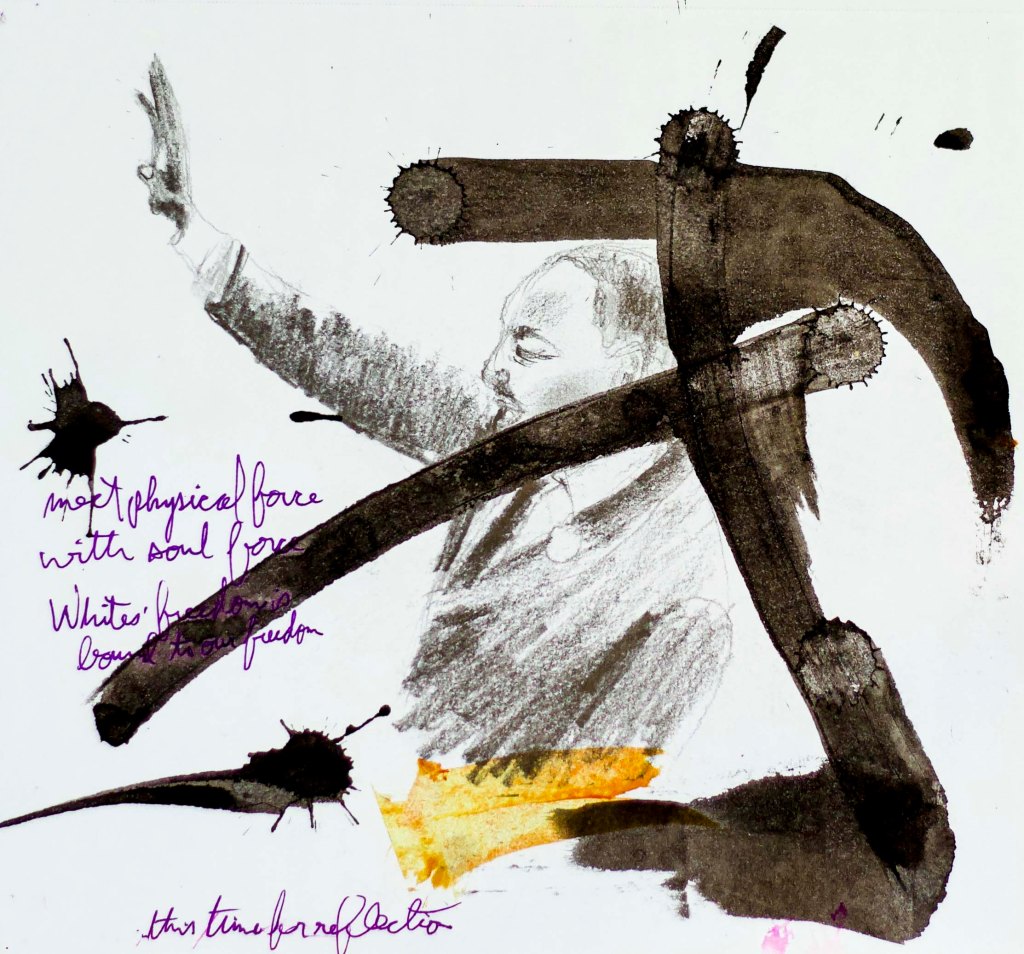 meet physical force
with soul force
Whites' freedom is
bound to our freedom
this time for reflectio